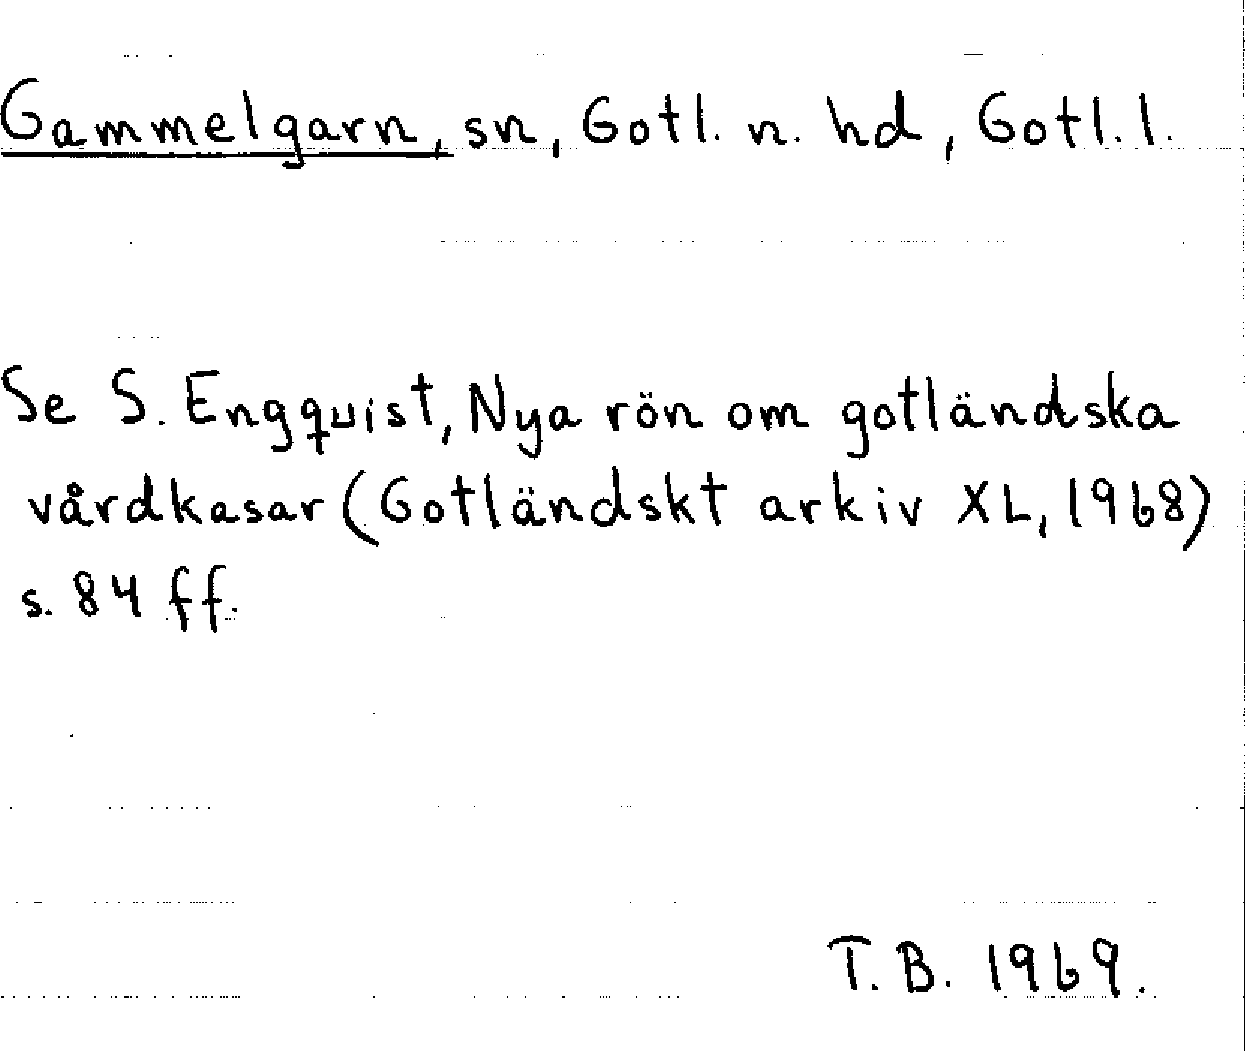 Gammelgarn, sn, Gotl. n. hd, Gotl. l.
Se S. Engquist, Nya rön om gotländska
vårdkasar (Gotländskt arkiv XL, 1968)
s. 84 ff.
T. B. 1969.